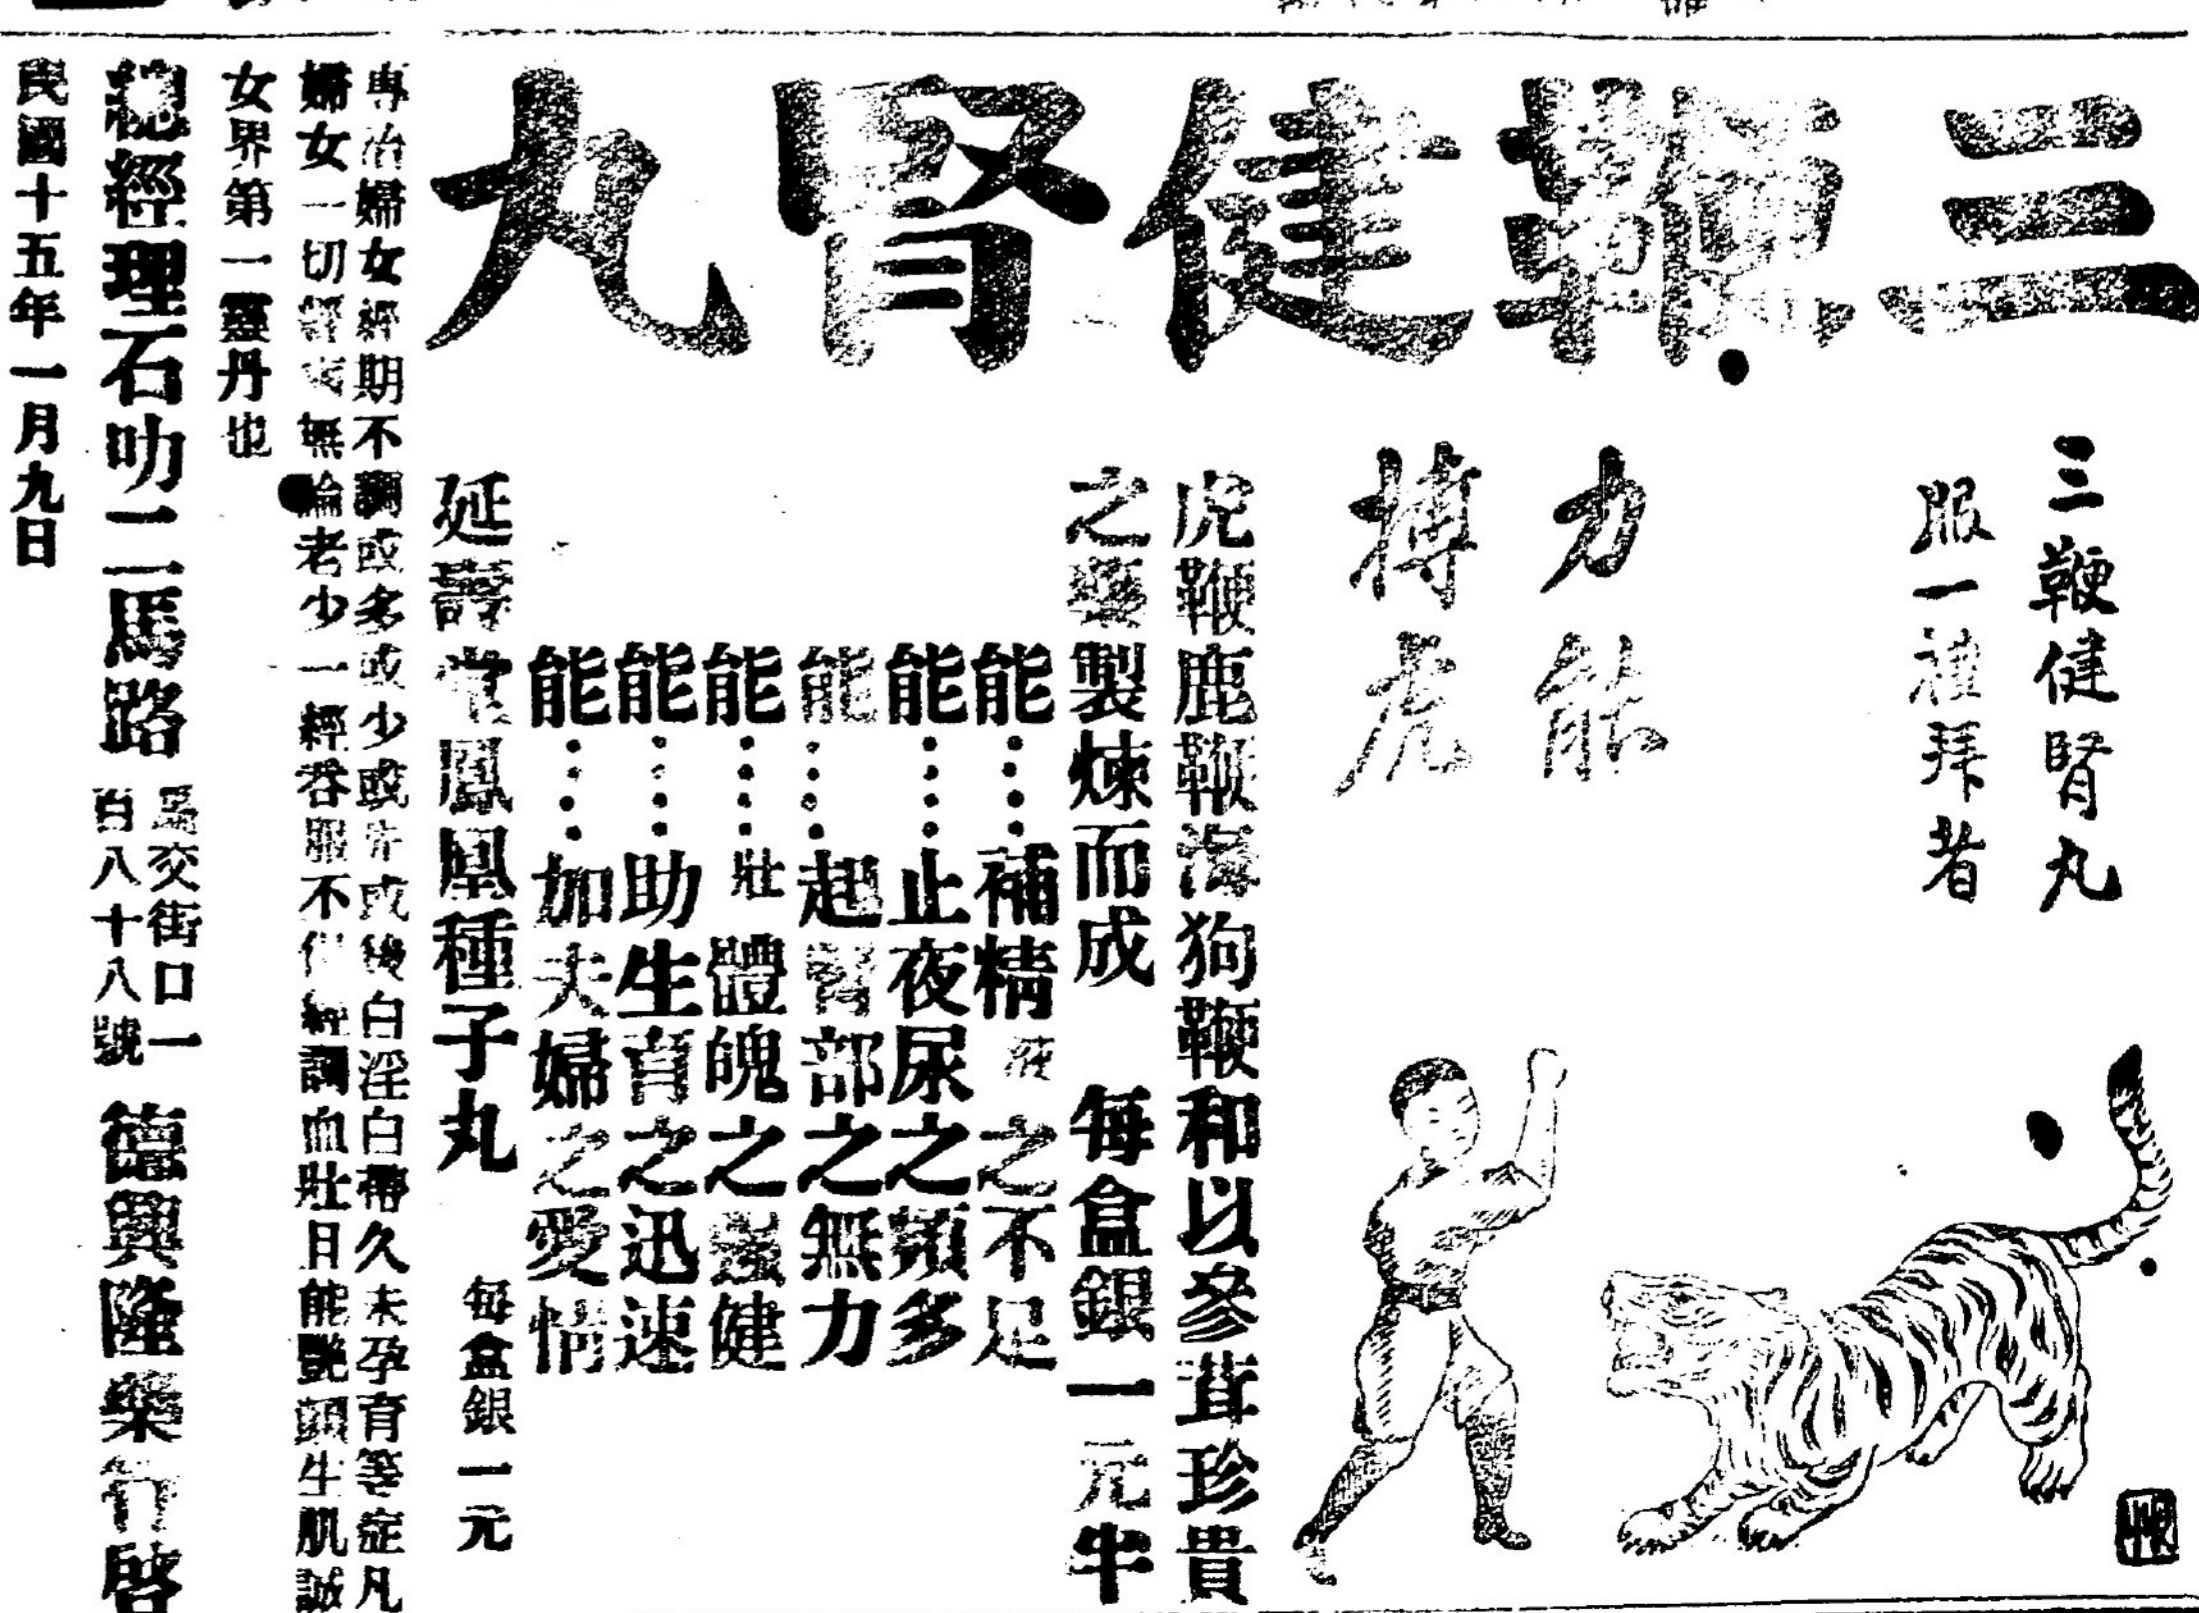 三鞭健腎丸
三鞭健腎丸
服一禮拜者
力能
搏虎
虎鞭鹿鞭海狗鞭和以參茸珍貴
之藥製煉而成 每盒銀一元半
能⋮補精液之不足
能⋮止夜尿之頻多
能⋮起腎部之無力
能⋮壯體魄之強健
能⋮助生育之迅速
能⋮加夫婦之愛情
延壽堂鳳凰種子丸 每盒銀一元
專治婦女經期不調或多或少或先或後白淫白帶久未孕育等症凡
婦女一切無論老少一經吞服不但經調血壯且能艷顏生肌誠
女界第一靈丹也
總經理石叻二馬路 馬交街口一百八十八號 德興隆藥行啓
民國十五年一月九日